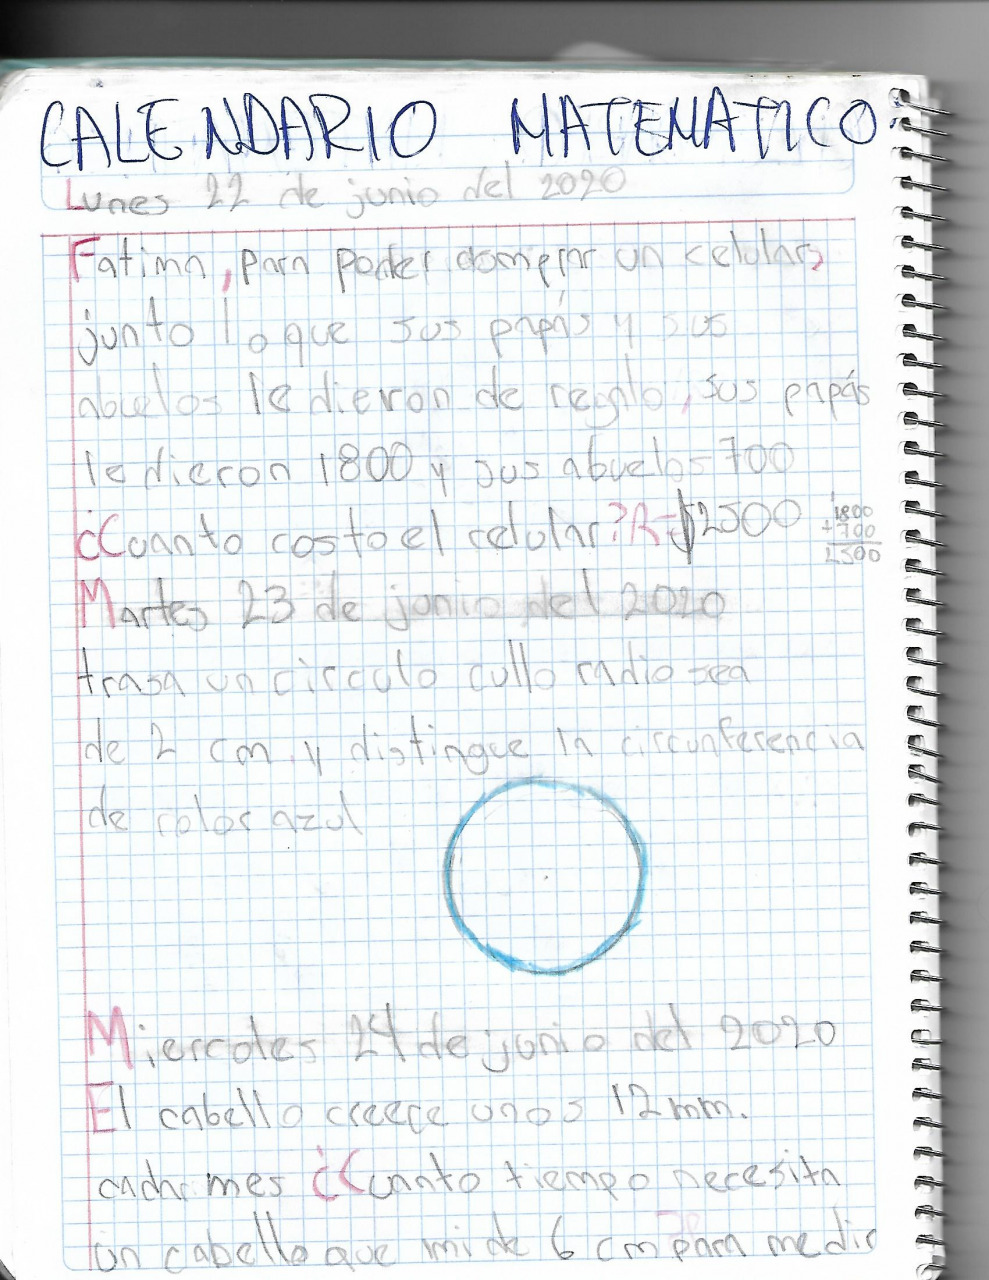 CALENDARIO MATEMATICO:
Lunes 22 de junio del 2020
Fatima, para poder comprar un celular,
junto lo que sus papás y sus
abuelos le dieron de regalo, sus papás
le dieron 1800 y sus abuelos 700
¿Cuanto costo el celular? R= $2500
1800
+700
2500
Martes 23 de junio del 2020
trasa un circulo cullo radio sea
de 2 cm y distingue la circunferencia
de color azul
Miercoles 24 de junio del 2020
El cabello creece unos 12 mm.
cada mes ¿Cuanto tiempo necesita
un cabello que mide 6 cm para medir